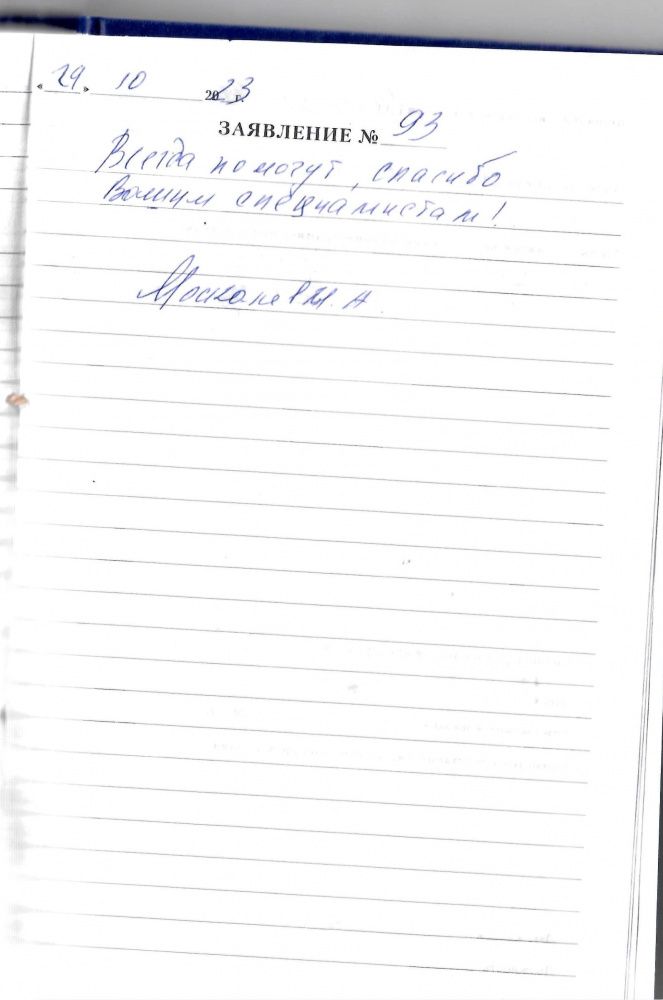 « 24 » 10 2023 г.
ЗАЯВЛЕНИЕ № 93
Всегда помогут, спасибо
Вашим специалистам!